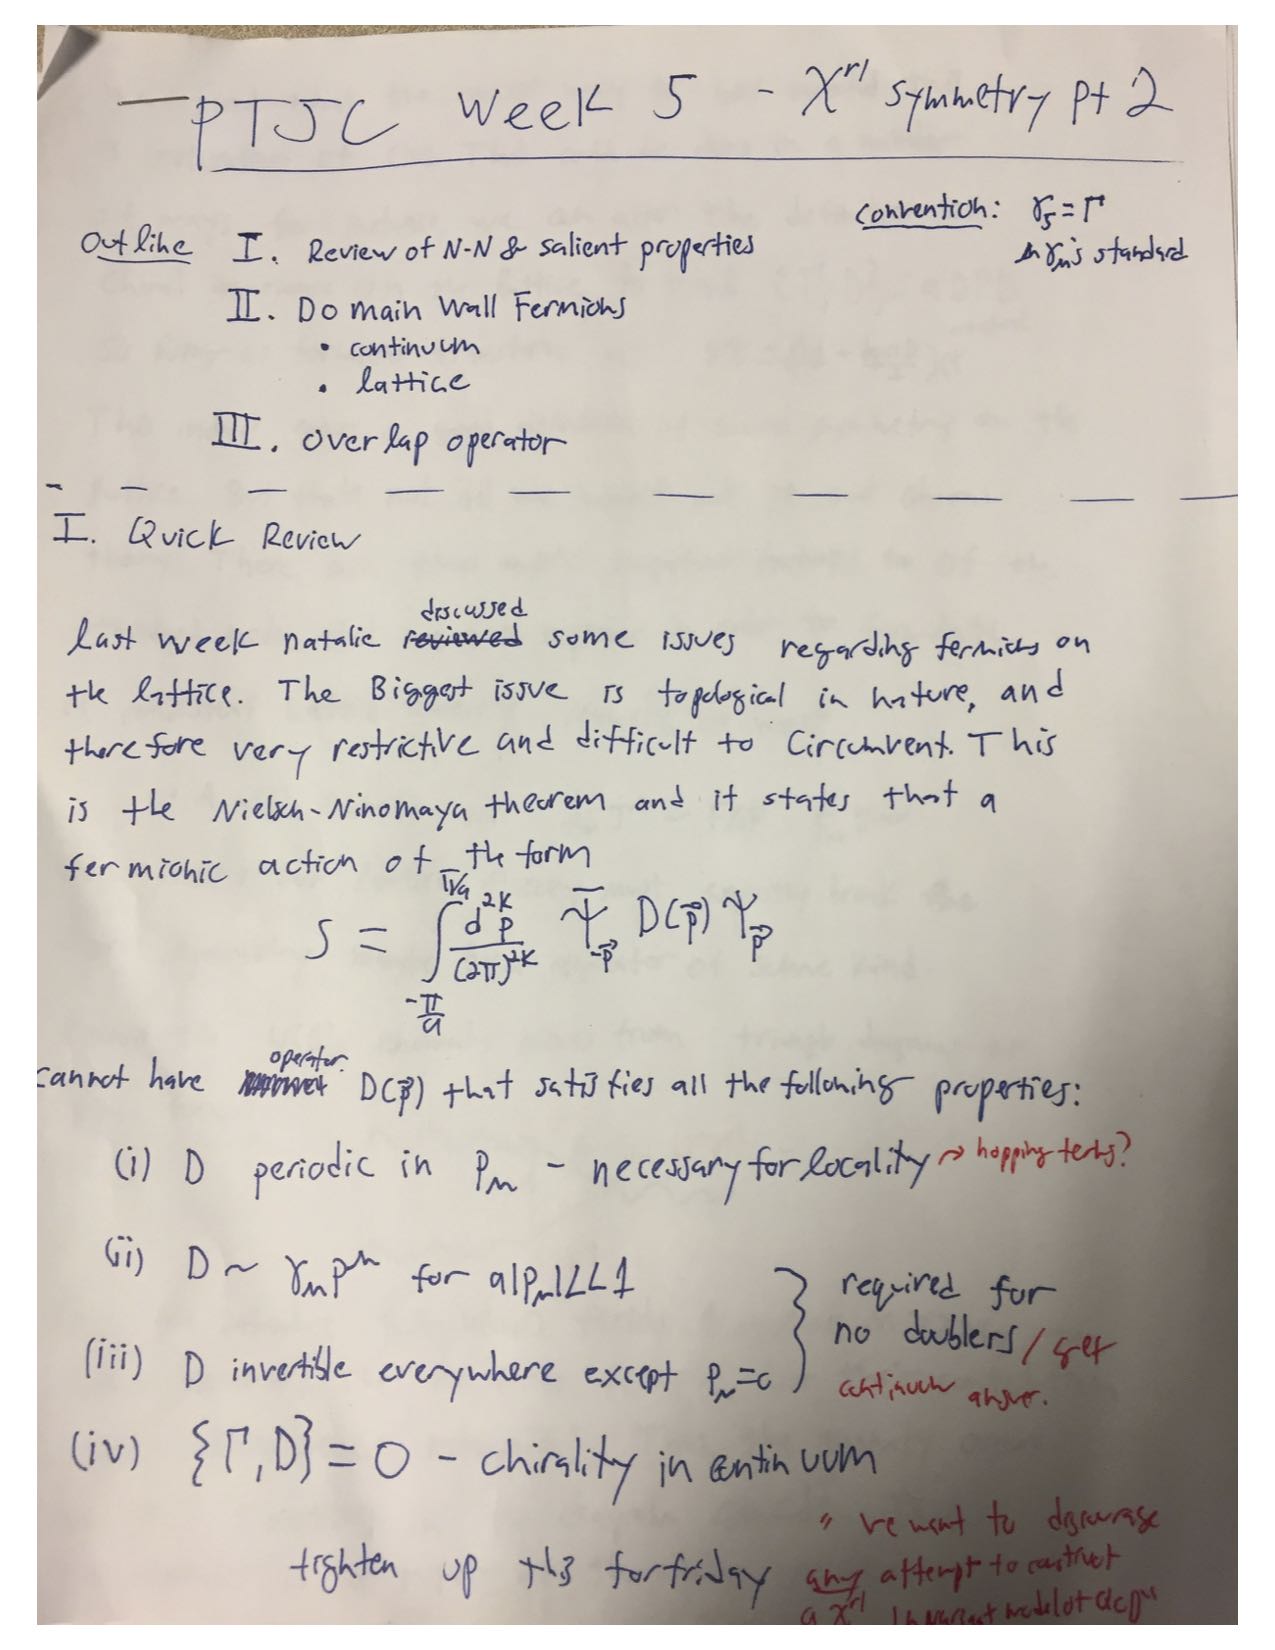 PTJC Week 5 - χ^rl symmetry pt 2
convention: γ5 = Γ
γμ's standard
Outline I. Review of N-N & salient properties
II. Domain Wall Fermions
• continuum
• lattice
III. Overlap operator
I. Quick Review
discussed
last week natalie reviewed some issues regarding fermions on
the lattice. The Biggest issue is topological in nature, and
therefore very restrictive and difficult to Circumvent. This
is the Nielsen-Ninomaya theorem and it states that a
fermionic action of the form
S = ∫_{-π/a}^{π/a} d^{2k}p/(2π)^{2k} Ψ̄_{-p⃗} D(p⃗) Ψ_{p⃗}
operator
cannot have D(p⃗) that satisfies all the following properties:
(i) D periodic in pμ - necessary for locality → hopping terms?
(ii) D ~ γμ p^μ for a|pμ| << 1
(iii) D invertible everywhere except pμ = 0
} required for
no doublers / get
continuum answer.
(iv) {Γ, D} = 0 - chirality in continuum
tighten up this for friday
" we want to discourage
any attempt to construct
a χ^rl invariant model of